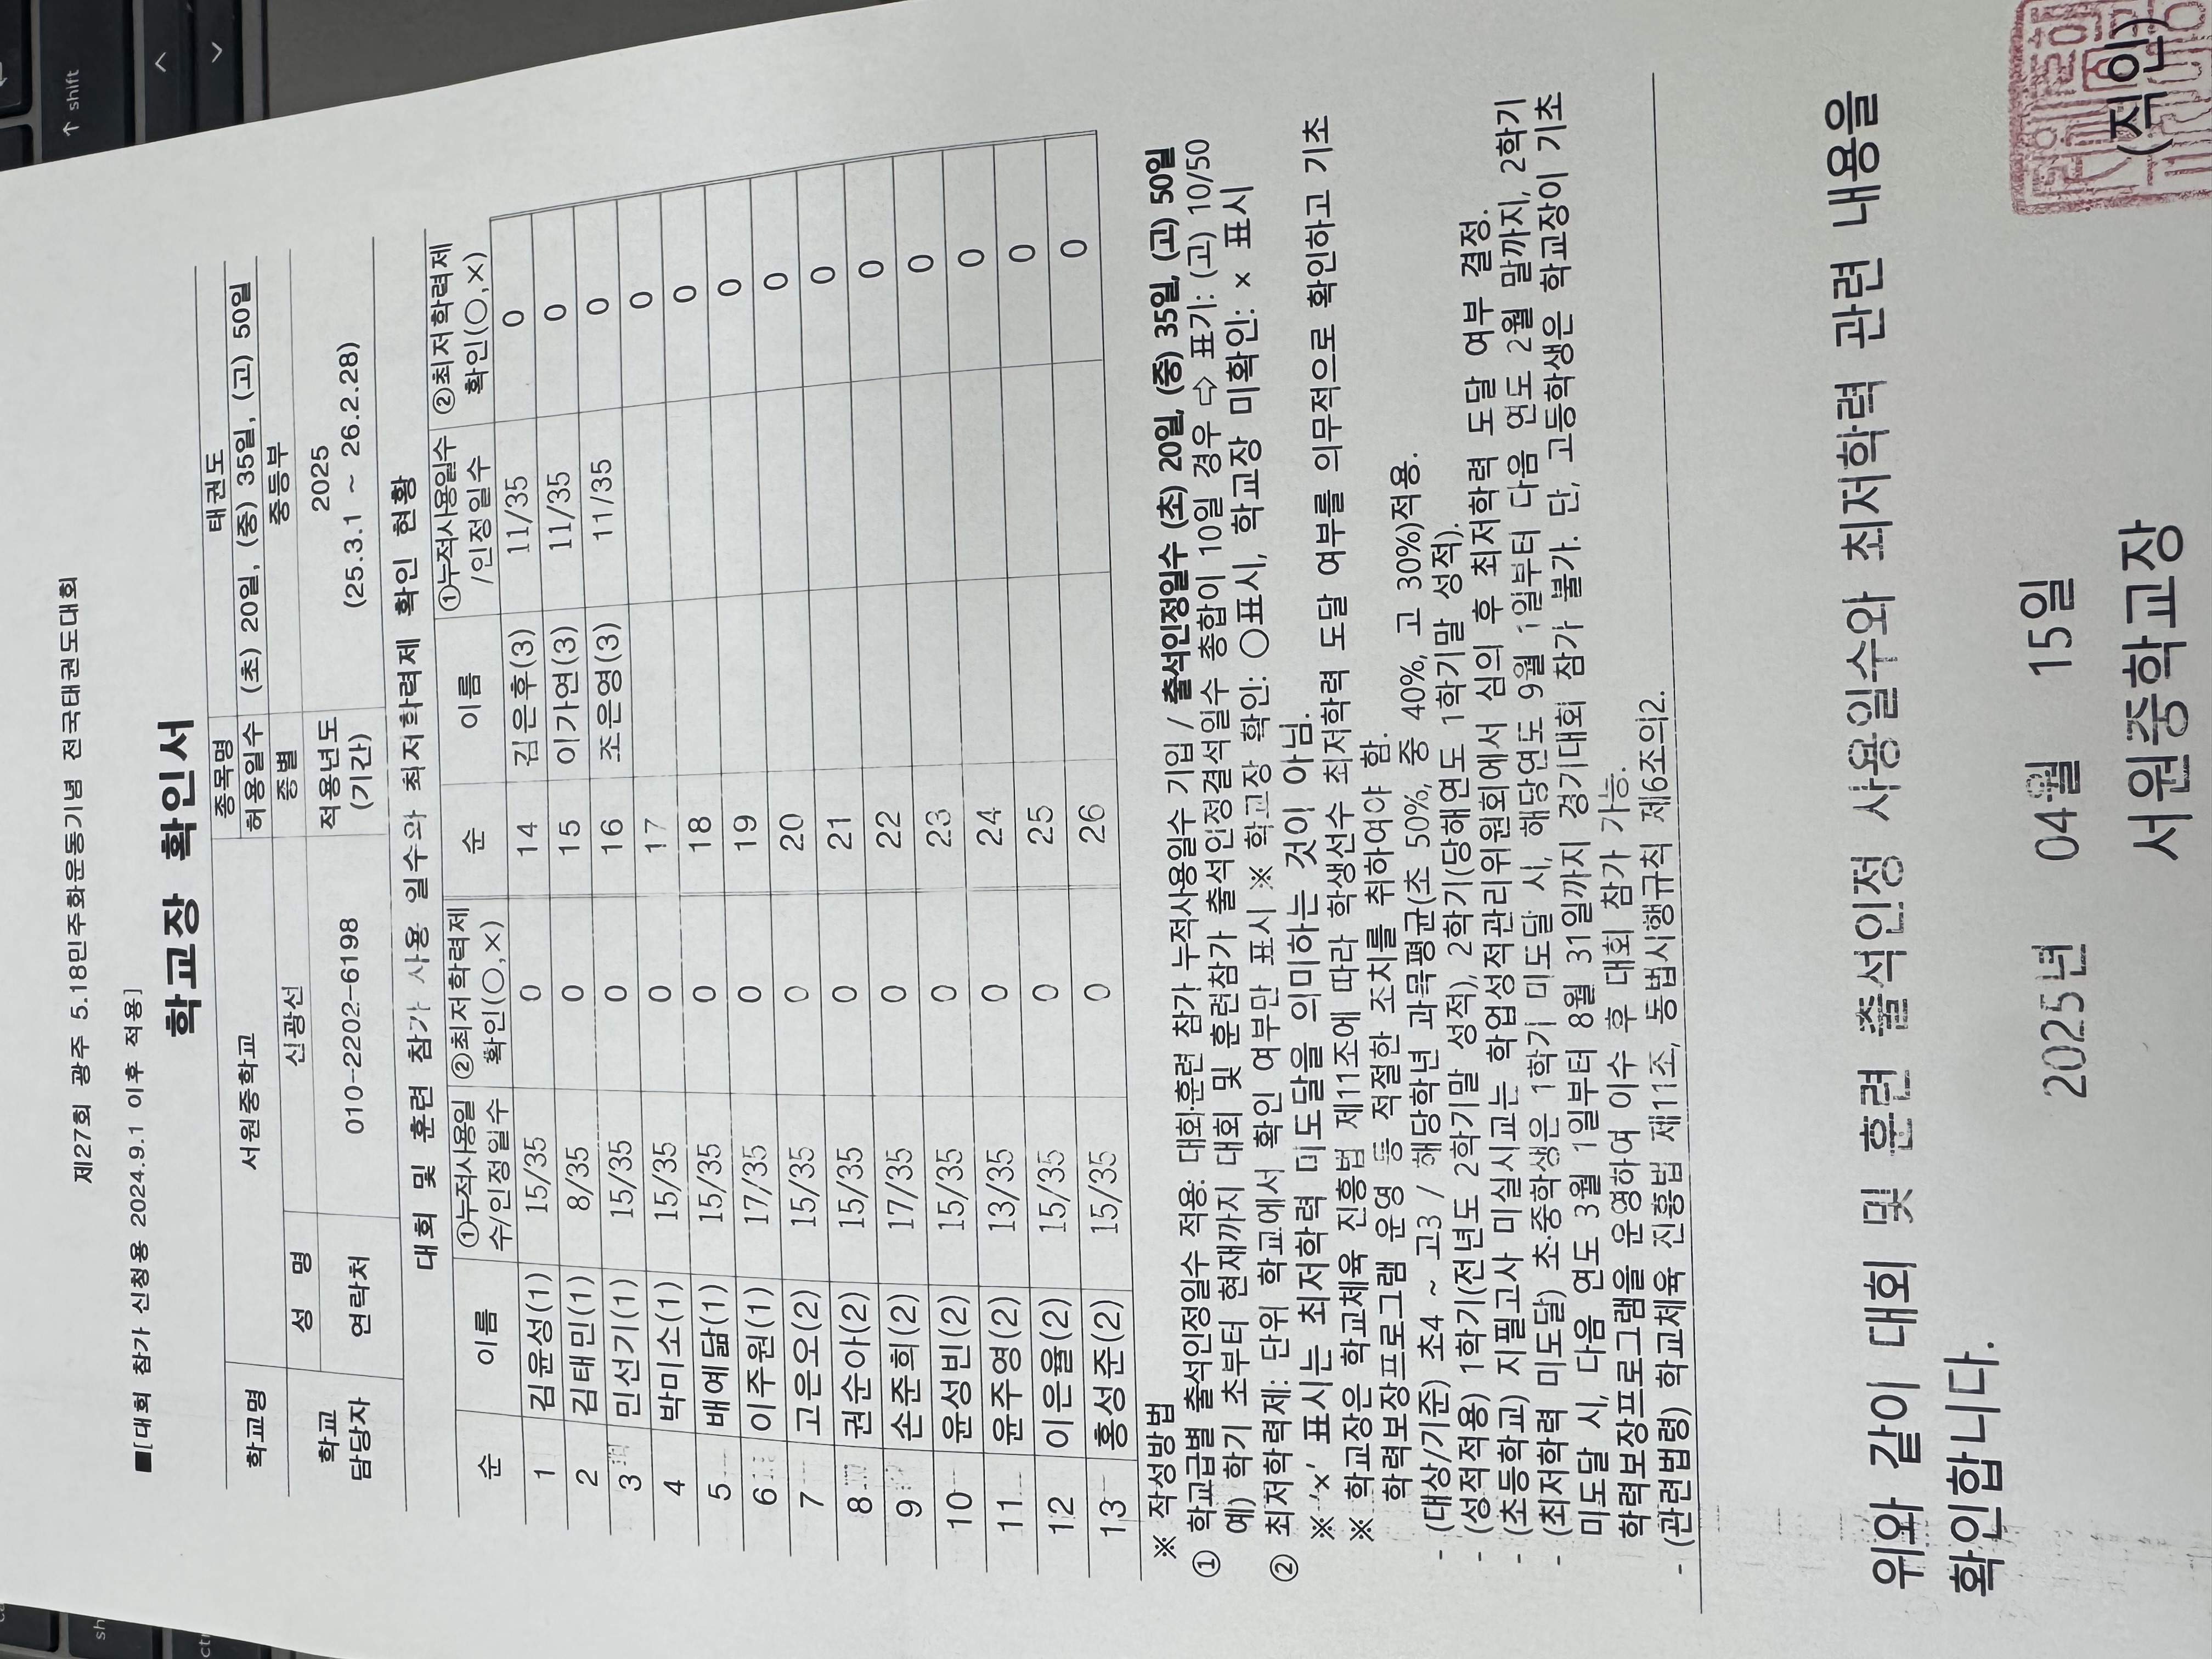 제27회 광주 5.18민주화운동기념 전국태권도대회
■[대회 참가 신청용 2024.9.1 이후 적용]
학교장 확인서
학교명 서원중학교 종목명 태권도
허용일수 (초) 20일, (중) 35일, (고) 50일
학교 담당자 성 명 신광선 종별 중등부
연락처 010-2202-6198 적용년도 (기간) 2025 (25.3.1 ~ 26.2.28)
대회 및 훈련 참가 사용 일수와 최저학력제 확인 현황
순 이름 ①누적사용일수/인정일수 ②최저학력제 확인(○,×) 순 이름 ①누적사용일수/인정일수 ②최저학력제 확인(○,×)
1 김윤성(1) 15/35 0 14 김은후(3) 11/35 0
2 김태민(1) 8/35 0 15 이가연(3) 11/35 0
3 민선기(1) 15/35 0 16 조은영(3) 11/35 0
4 박미소(1) 15/35 0 17 0
5 배예닮(1) 15/35 0 18 0
6 이주원(1) 17/35 0 19 0
7 고은오(2) 15/35 0 20 0
8 권순아(2) 15/35 0 21 0
9 손준희(2) 17/35 0 22 0
10 윤성빈(2) 15/35 0 23 0
11 윤주영(2) 13/35 0 24 0
12 이은율(2) 15/35 0 25 0
13 홍성준(2) 15/35 0 26 0
※ 작성방법
① 학교급별 출석인정일수 적용: 대회·훈련 참가 누적사용일수 기입 / 출석인정일수 (초) 20일, (중) 35일, (고) 50일
예) 학기 초부터 현재까지 대회 및 훈련참가 출석인정결석일수 총합이 10일 경우 ⇨ 표기: (고) 10/50
② 최저학력제: 단위 학교에서 확인 여부만 표시 ※ 학교장 확인: ○표시, 학교장 미확인: × 표시
※ '×' 표시는 최저학력 미도달을 의미하는 것이 아님.
※ 학교장은 학교체육 진흥법 제11조에 따라 학생선수 최저학력 도달 여부를 의무적으로 확인하고 기초
학력보장프로그램 운영 등 적절한 조치를 취하여야 함.
- (대상/기준) 초4 ~ 고3 / 해당학년 과목평균(초 50%, 중 40%, 고 30%)적용.
- (성적적용) 1학기(전년도 2학기말 성적), 2학기(당해연도 1학기말 성적).
- (초등학교) 지필고사 미실시교는 학업성적관리위원회에서 심의 후 최저학력 도달 여부 결정.
- (최저학력 미도달) 초·중학생은 1학기 미도달 시, 해당연도 9월 1일부터 다음 연도 2월 말까지, 2학기
미도달 시, 다음 연도 3월 1일부터 8월 31일까지 경기대회 참가 불가. 단, 고등학생은 학교장이 기초
학력보장프로그램을 운영하여 이수 후 대회 참가 가능.
- (관련법령) 학교체육 진흥법 제11조, 동법시행규칙 제6조의2.
위와 같이 대회 및 훈련 출석인정 사용일수와 최저학력 관련 내용을
확인합니다.
2025년 04월 15일
서원중학교장 (직인)